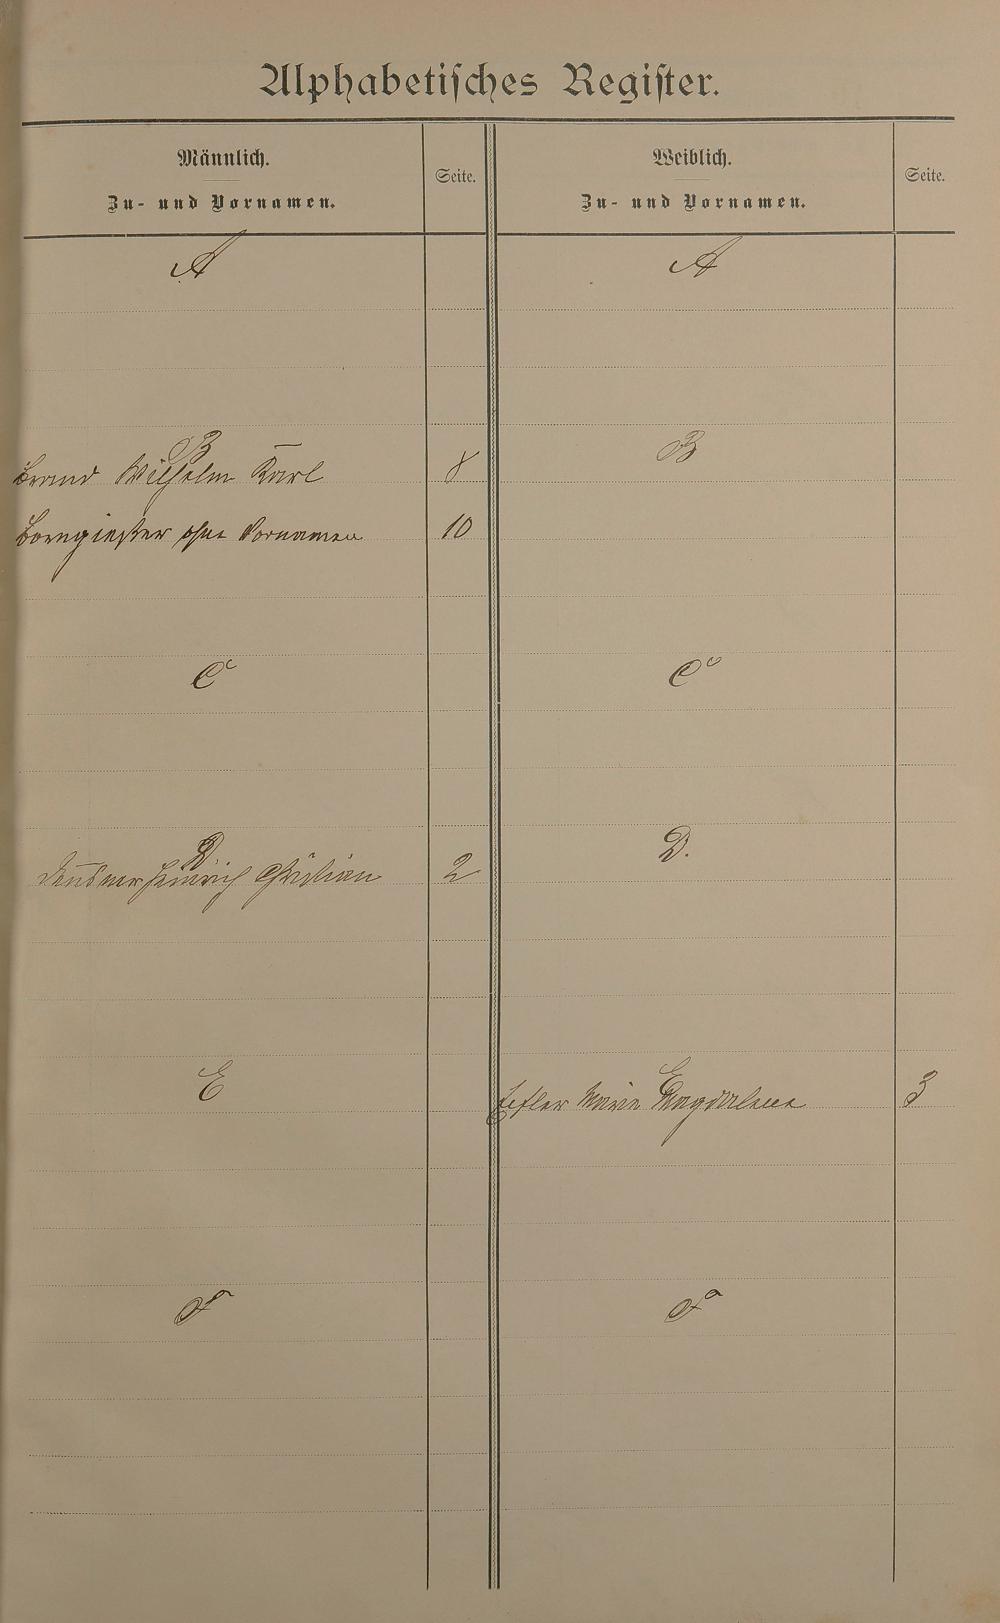 Alphabetisches Register.
Männlich.
Zu- und Vornamen.
Seite.
Weiblich.
Zu- und Vornamen.
Seite.
A
A
B
B
Brand Wilhelm Karl 8
ohne Vornamen 10
C
C
D.
D.
Heinrich Christian 2
E
E
Marie Magdalena 3
F
F